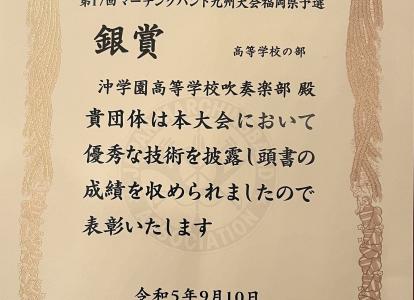 第17回マーチングバンド九州大会福岡県予選
銀賞
高等学校の部
沖学園高等学校吹奏楽部 殿
貴団体は本大会において
優秀な技術を披露し頭書の
成績を収められましたので
表彰いたします
令和5年9月10日